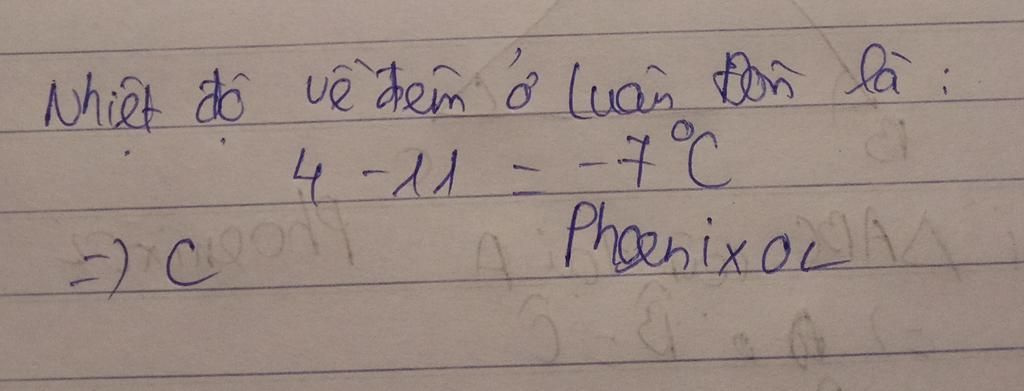 Nhiệt độ về đêm ở Luân Đôn là :
4 - 11 = -7°C
=) C
Phoenixoc